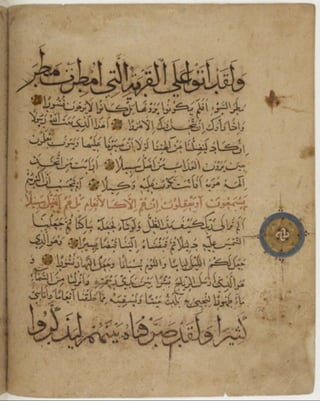 ولقد اتوا على القرية التي امطرت مطر
مطر السوء افلم يكونوا يرونها بل كانوا لا يرجون نشورا
واذا راوك ان يتخذونك الا هزوا اهذا الذي بعث الله رسولا
ان كاد ليضلنا عن الهتنا لولا ان صبرنا عليها وسوف يعلمون
حين يرون العذاب من اضل سبيلا ارايت من اتخذ
الهه هويه افانت تكون عليه وكيلا ام تحسب ان اكثرهم
يسمعون او يعقلون ان هم الا كالانعام بل هم اضل سبيلا
الم تر الى ربك كيف مد الظل ولو شاء لجعله ساكنا ثم جعلنا
الشمس عليه دليلا ثم قبضناه الينا قبضا يسيرا وهو الذي
جعل لكم الليل لباسا والنوم سباتا وجعل النهار نشورا و
هو الذي ارسل الرياح بشرا بين يدي رحمته وانزلنا من السماء
ماء طهورا لنحيي به بلدة ميتا ونسقيه مما خلقنا انعاما واناسي
كثيرا ولقد صرفناه بينهم ليذكروا